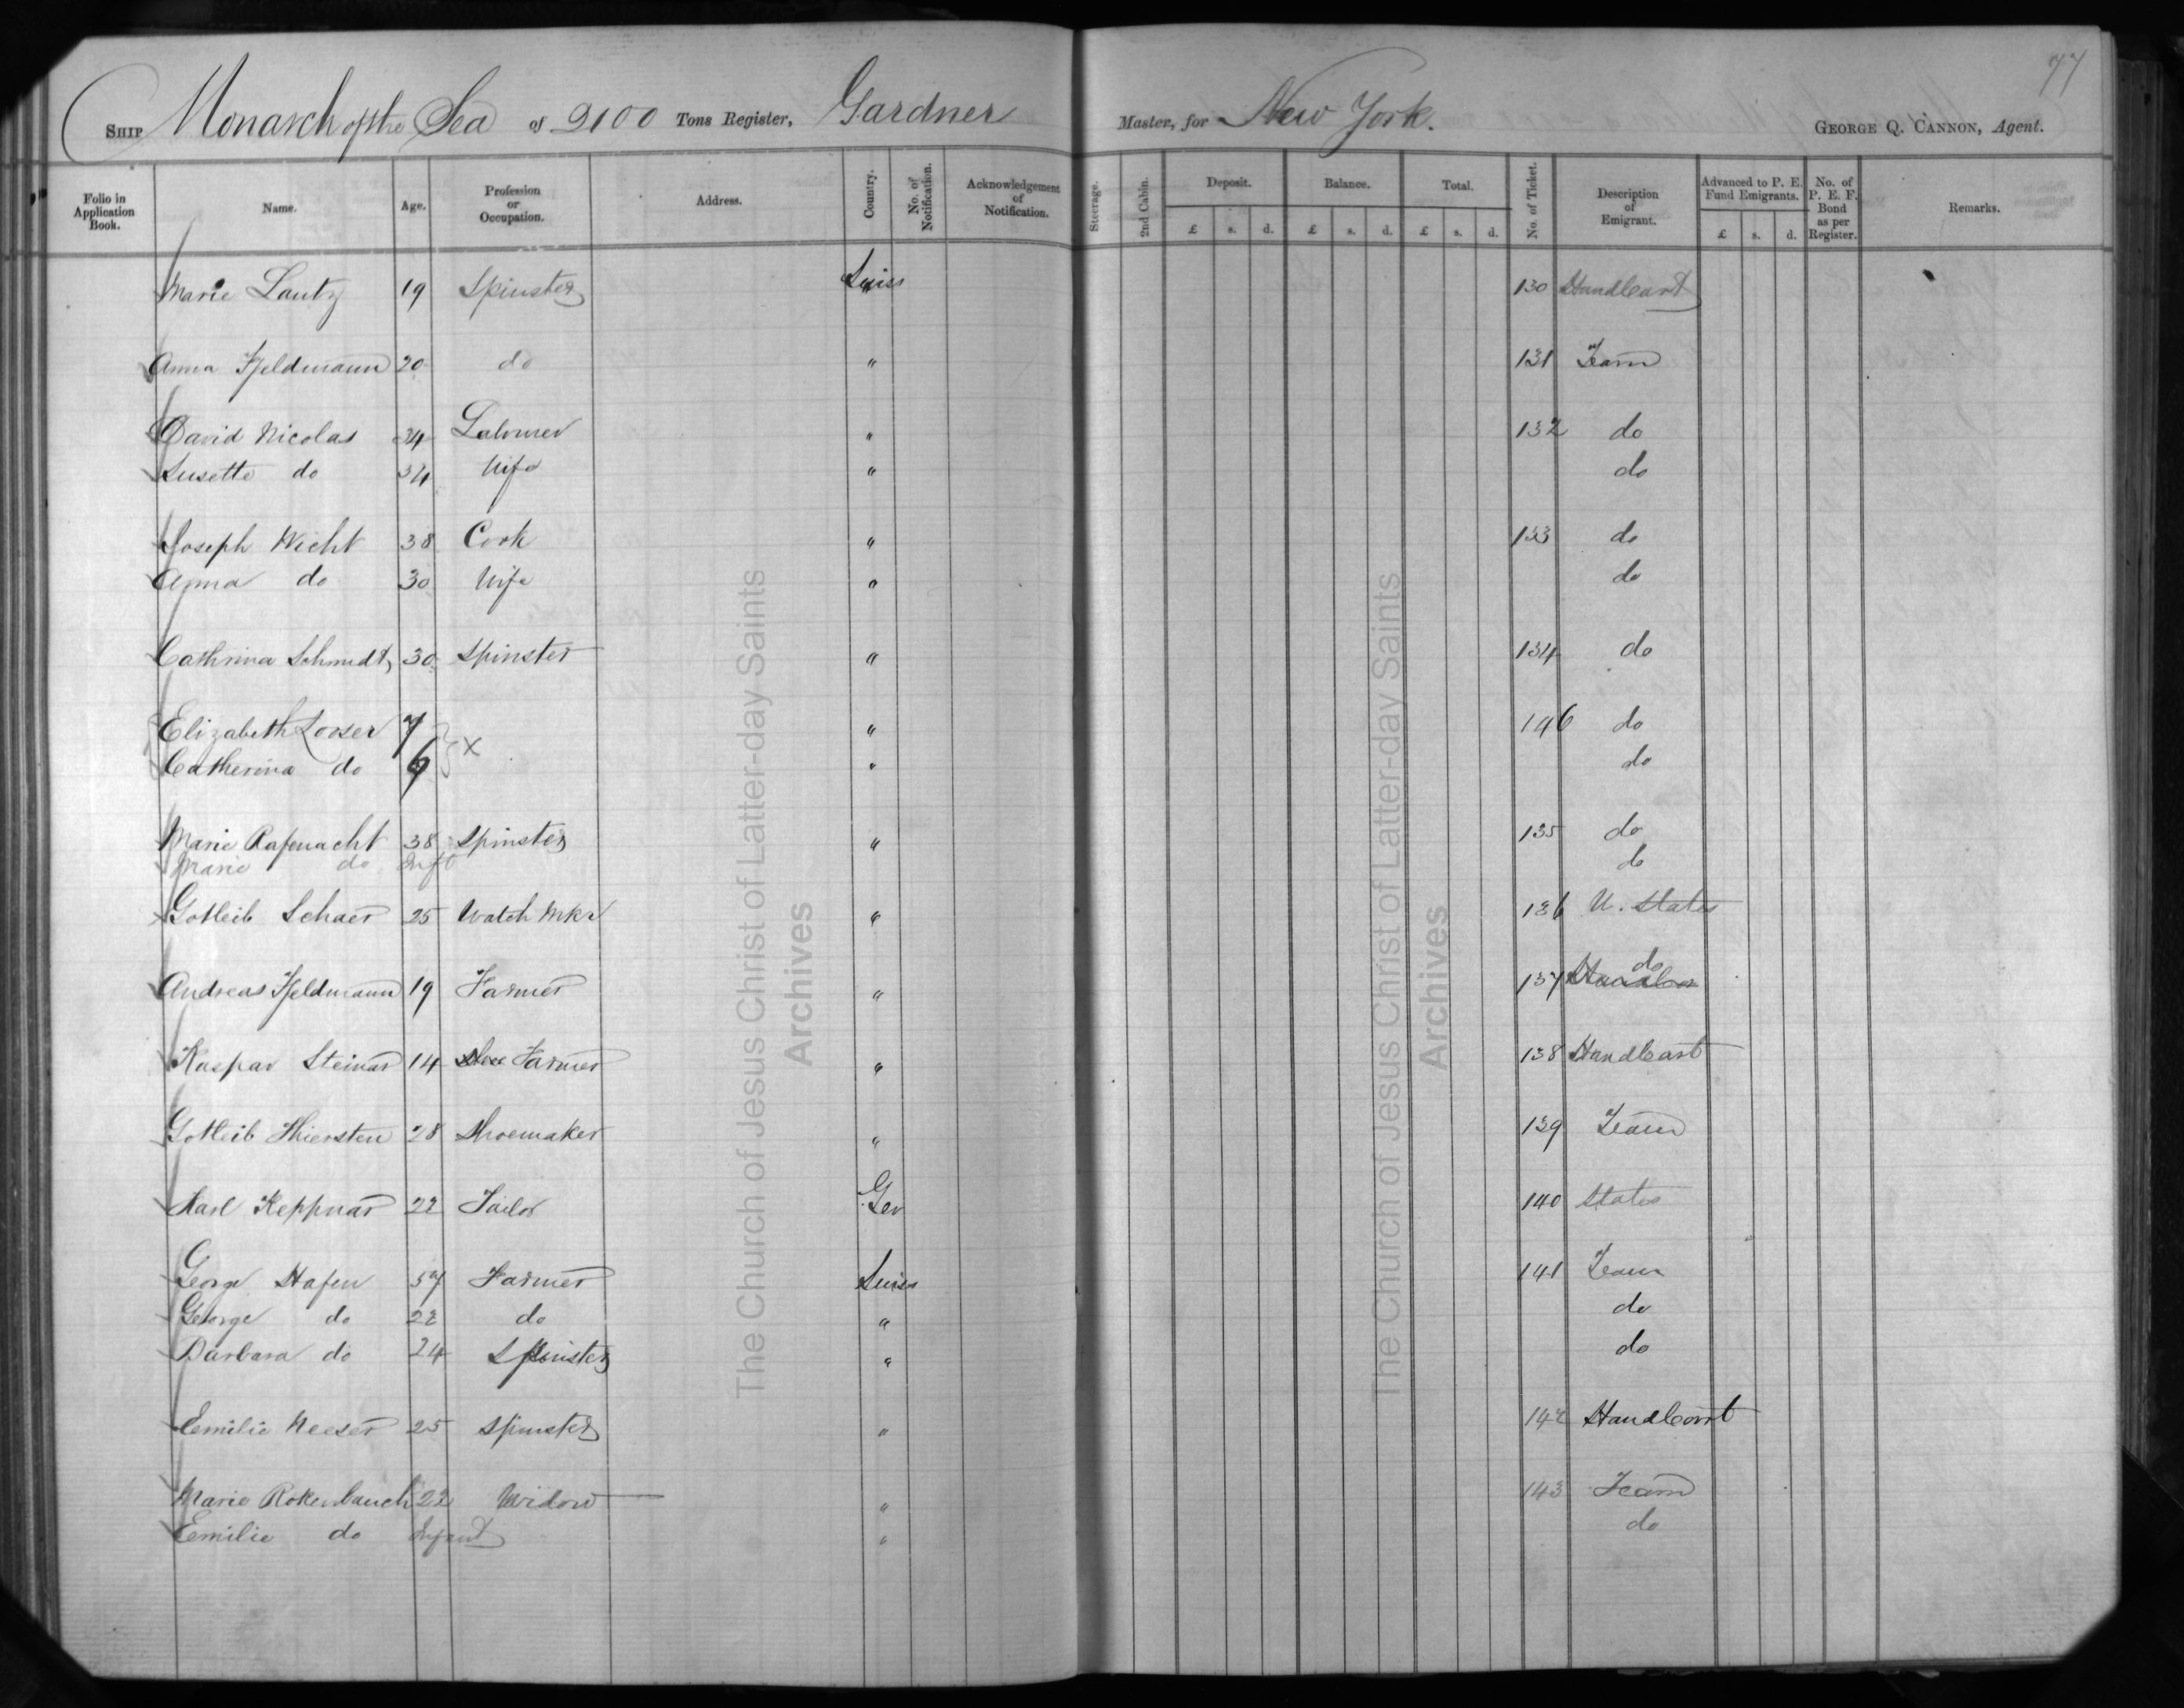 77
SHIP Monarch of the Sea of 2100 Tons Register, Gardner Master, for New York. GEORGE Q. CANNON, Agent.
Folio in Application Book. Name. Age. Profession or Occupation. Address. Country. No. of Notification. Acknowledgement of Notification. Steerage. 2nd Cabin. Deposit. Balance. Total. No. of Ticket. Description of Emigrant. Advanced to P. E. Fund Emigrants. No. of P. E. F. Bond as per Register. Remarks.
£ s. d. £ s. d. £ s. d. £ s. d.
Marie Lautz 19 Spinster Swiss 130 HandCart
Anna Feldmann 20 do " 131 Team
David Nicolas 34 Labourer " 132 do
Susette do 34 Wife " do
Joseph Wicht 38 Cook " 133 do
Anna do 30 Wife " do
Cathrina Schmidt 30 Spinster " 134 do
Elizabeth Looser 7 " 146 do
Catherina do 6 x " do
Marie Rafenacht 38 Spinster " 135 do
Marie do Inft do
Gotleib Schaer 25 Watch Mkr " 136 U. States
Andreas Feldmann 19 Farmer " 137 do
Kaspar Steiner 14 Farmer " 138 HandCart
Gotleib Thiersten 28 Shoemaker " 139 Team
Karl Keppnar 22 Tailor Ger 140 States
George Hafen 57 Farmer Swiss 141 Team
George do 22 do " do
Barbara do 24 Spinster " do
Emilie Neeser 25 Spinster " 142 HandCart
Marie Rokenbauch 22 Widow " 143 Team
Emilie do Infant " do
The Church of Jesus Christ of Latter-day Saints
Archives
The Church of Jesus Christ of Latter-day Saints
Archives